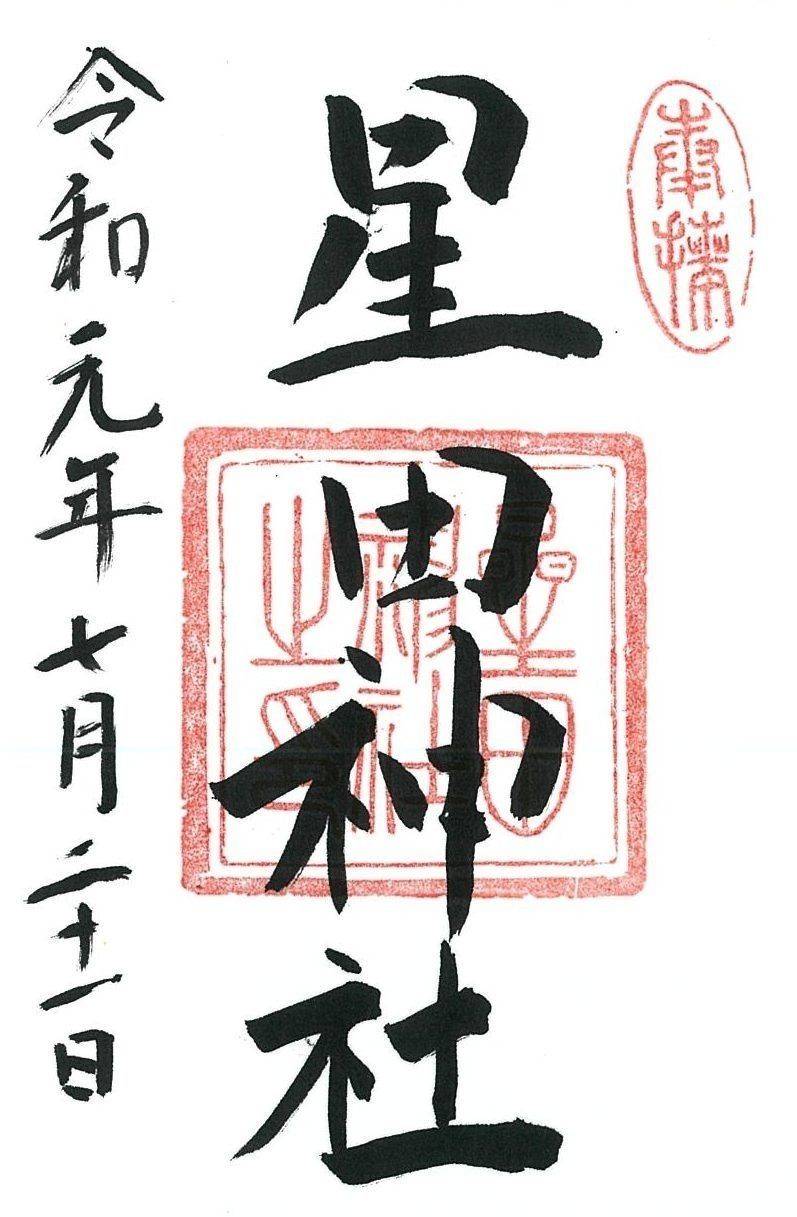 奉拝
星田神社
星田神社之印
令和元年七月二十一日